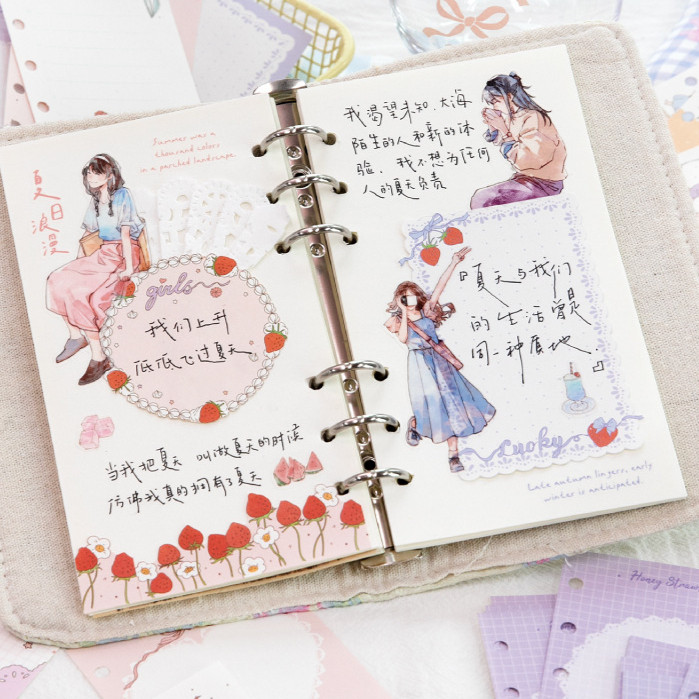 Summer was a
thousand colors
in a parched landscape.
夏日
浪漫
girls
我们上升
低低飞过夏天
当我把夏天 叫做夏天的时候
仿佛我真的拥有了夏天
我渴望未知、大海
陌生的人和新的体
验，我不想为任何
人的夏天负责
『夏天与我们
的生活曾是
同一种质地.
』
Lucky
Late autumn lingers, early
winter is anticipated.
Honey